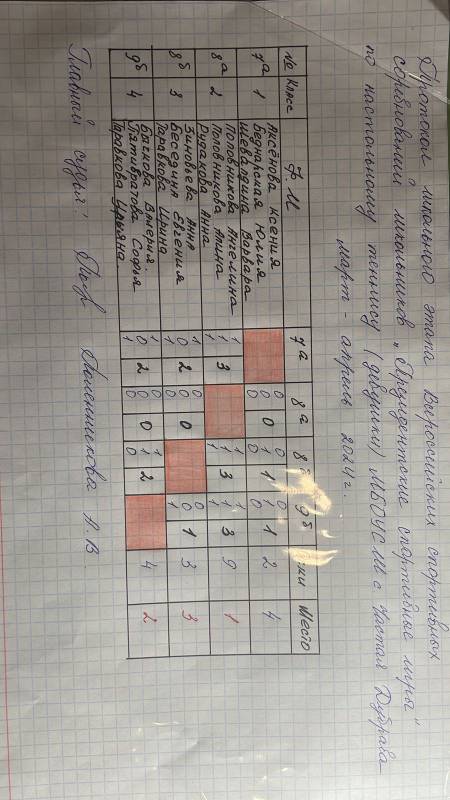 Протокол школьного этапа Всероссийских спортивных
соревнований школьников „Президентские спортивные игры"
по настольному теннису (девушки) МБОУ с. Частая Дубрава
март - апрель 2024г.
№ Класс Ф И 7а 8а 8 9б ки Место
Аксёнова Ксения 0 0 0
7а 1 Беднайская Юлия 0 0 1 1 1 1 2 4
Шевалдина Варвара 0 0 0
Половникова Ангелина 1 1 1
8а 2 Половникова Алина 1 3 1 3 1 3 9 1
Рудакова Анна 1 1 1
Зиновьева Анна 1 0 0
8б 3 Беседина Евгения 0 2 0 0 0 1 3 3
Таравкова Ирина 1 0 1
Бычкова Валерия. 1 0 1
9б 4 Пятибратова Софья 0 2 0 0 1 2 4 2
Таравкова Ульяна 1 0 0
Главный судья: Поленникова А. В